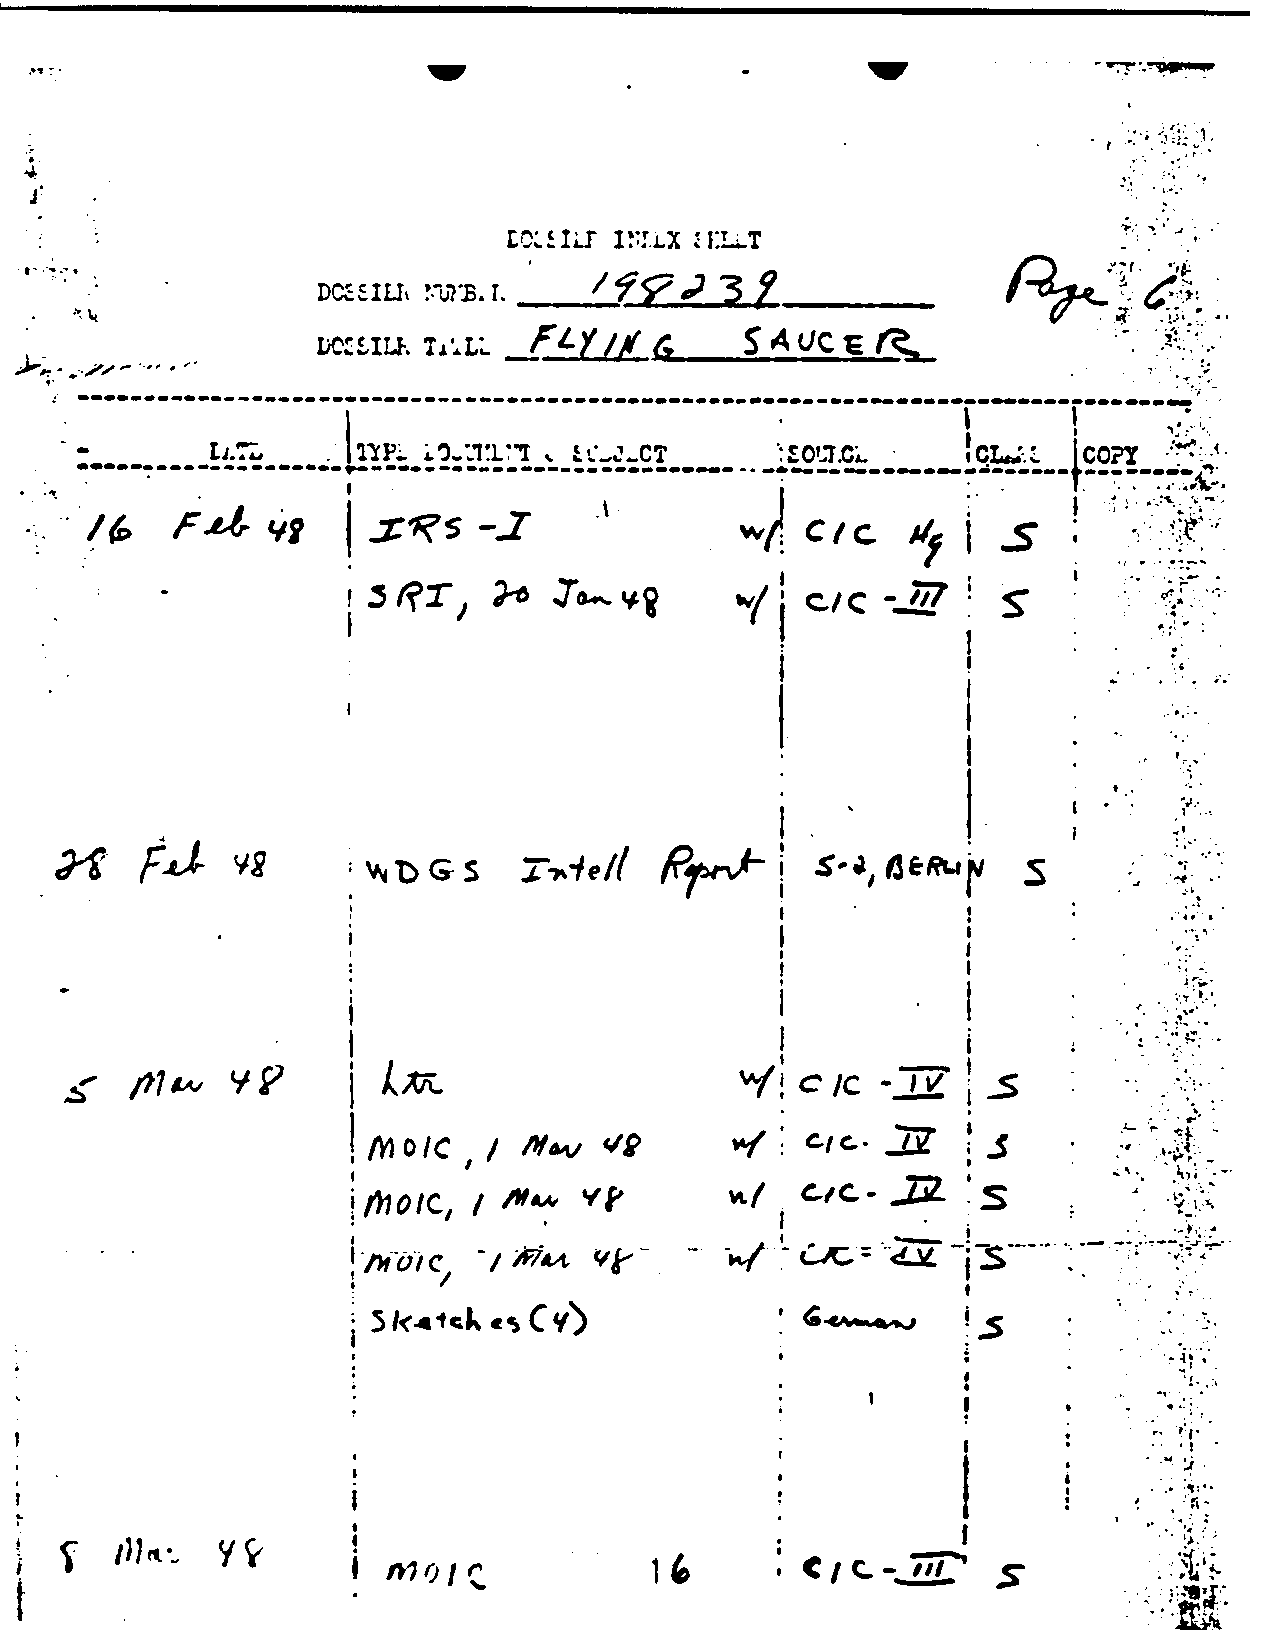 DOSSIER INDEX SHEET
DOSSIER NUMBER 198239 Page 6
DOSSIER TITLE FLYING SAUCER
DATE TYPE DOCUMENT & SUBJECT SOURCE CLASS COPY
16 Feb 48 IRS-I w/ CIC Hq S
SRI, 20 Jan 48 w/ CIC-III S
28 Feb 48 WDGS Intell Report S-2, BERLIN S
5 Mar 48 Ltr w/ CIC-IV S
MOIC, 1 Mar 48 w/ CIC-IV S
MOIC, 1 Mar 48 w/ CIC-IV S
MOIC, 1 Mar 48 w/ CIC-IV S
Sketches (4) German S
8 Mar 48 MOIC 16 CIC-III S